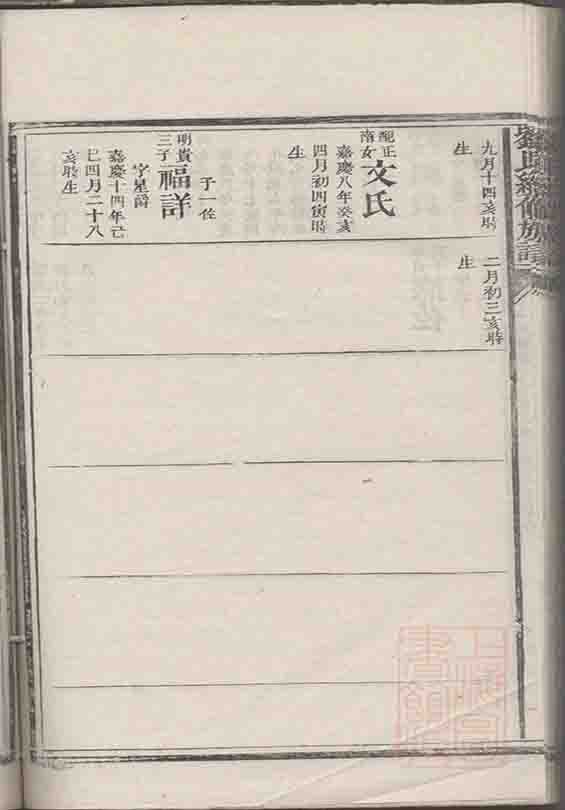 劉氏續修族譜
九月十四亥時
生
配正
南女
文氏
嘉慶八年癸亥
四月初四寅時
生
子一佐
明貴
三子
福詳
字星爵
嘉慶十四年己
巳四月二十八
亥時生
二月初三亥時
生
上海圖
書館藏